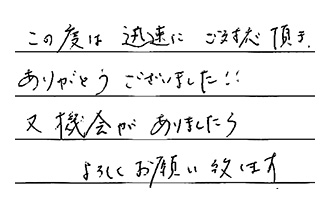 この度は 迅速に ご対応 頂き、
ありがとう ございました!!
又 機会が ありましたら
よろしく お願い 致します